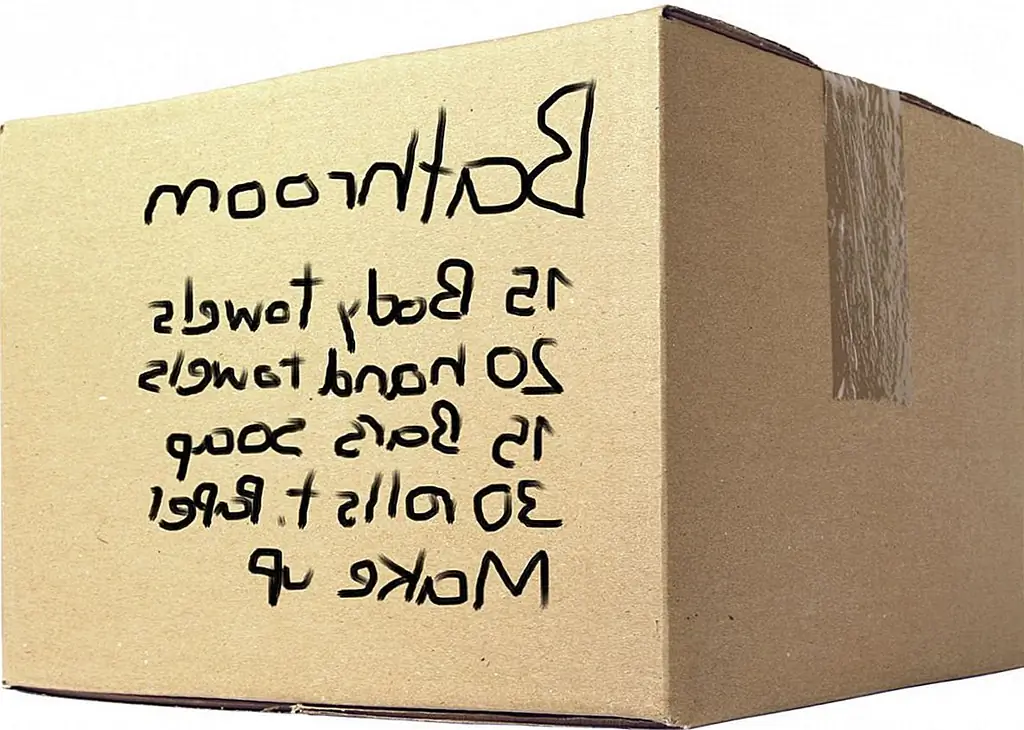 Bathroom
15 Body towels
20 hand towels
15 Bars soap
30 rolls t. Paper
Make up